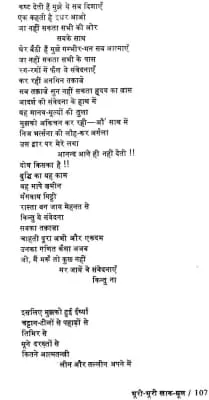 कष्ट देती हैं मुझे ये सब दिशाएँ
एक कहती है इधर आओ
जा नहीं सकता सभी की ओर
सबके साथ
घेर बैठी हैं मुझे गम्भीर-मन सब आत्माएँ
जा नहीं सकता सभी के पास
रग-रगों में फैल ये संवेदनाएँ
कर रहीं अनगिन तक़ाज़े
सब तक़ाज़े सुन नहीं सकता हृदय का ज्ञान
आदर्श की संवेदना के हाथ में
यह मानव-मूल्यों की तुला
मुझको अकिंचन कर रही—औ' साथ में
निज भर्त्सना की लौह-कर अर्गला
उस द्वार पर मेरे लगा
आनन्द आने ही नहीं देती !!
दोष किसका है !!
बुद्धि का यह काम
वह मापे ज़मीन
मँगवाय मिट्टी
रास्ता बन जाय मेहनत से
किन्तु ये संवेदना
सबका तक़ाज़ा
चाहती पूरा अभी और एकदम
उनका गणित कैसा अजब
जी, मैं मरूँ तो कुछ नहीं
मर जायें वे संवेदनाएँ
किन्तु ना
इसलिए मुझको हुई ईर्ष्या
चट्टान-टीलों से पहाड़ों से
तिमिर से
सूने दरख़्तों से
कितने आत्मतन्त्री
लीन और तल्लीन अपने में
भूरी-भूरी खाक-धूल / 107